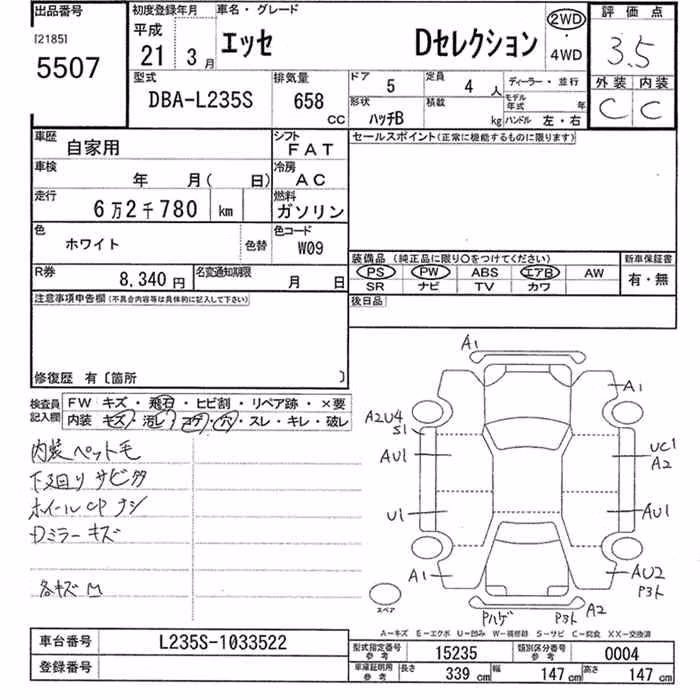 出品番号
[2185]
5507
初度登録年月
平成
21年 3月
車名・グレード
エッセ Dセレクション
2WD
・
4WD
評価点
3.5
外装 内装
C C
型式
DBA-L235S
排気量
658
CC
ドア
5
定員
4人
形状
ハッチB
積載
kg
ディーラー・並行
モデル年式 年
ハンドル 左・右
車歴
自家用
シフト
FAT
車検
年 月( 日)
冷房
AC
走行
6万2千780 km
燃料
ガソリン
色
ホワイト
色替
色コード
W09
R券
8,340円
名変通知期限
月 日
セールスポイント(正常に機能するものに限ります)
装備品 (純正品に限り○をつけてください)
PS PW ABS エアB AW
SR ナビ TV カワ
新車保証書
有・無
後日品
注意事項申告欄(不具合内容等は具体的に記入して下さい)
修復歴 有〔箇所 〕
検査員記入欄
FW キズ・飛石・ヒビ割・リペア跡・×要
内装 キズ・汚レ・コゲ・穴・スレ・キレ・破レ
内装ペット毛
下廻りサビタ
ホイールCPナシ
Dミラーキズ
各キズ M
A1
A1
A2U4
S1
AU1
UC1
A2
U1
AU1
A1
AU2
P3ト
スペア
Pハゲ
P3ト
A2
A-キズ E-エクボ U-凹み W-補修跡 S-サビ C-腐食 XX-交換済
車台番号
L235S-1033522
登録番号
型式指定番号
参考
15235
類別区分番号
参考
0004
車庫証明用
参考
長さ 339 cm 幅 147 cm 高さ 147 cm